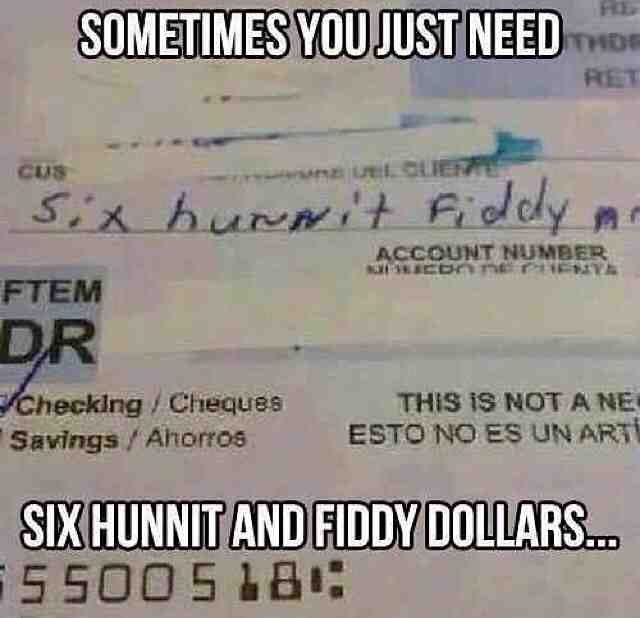 SOMETIMES YOU JUST NEED
RET
CUS DEL CLIENTE
Six hunnit Fiddy
ACCOUNT NUMBER
NUMERO DE CUENTA
FTEM
DR
Checking / Cheques
THIS IS NOT A NE
Savings / Ahorros
ESTO NO ES UN ARTÍ
SIX HUNNIT AND FIDDY DOLLARS...
5500518⑆